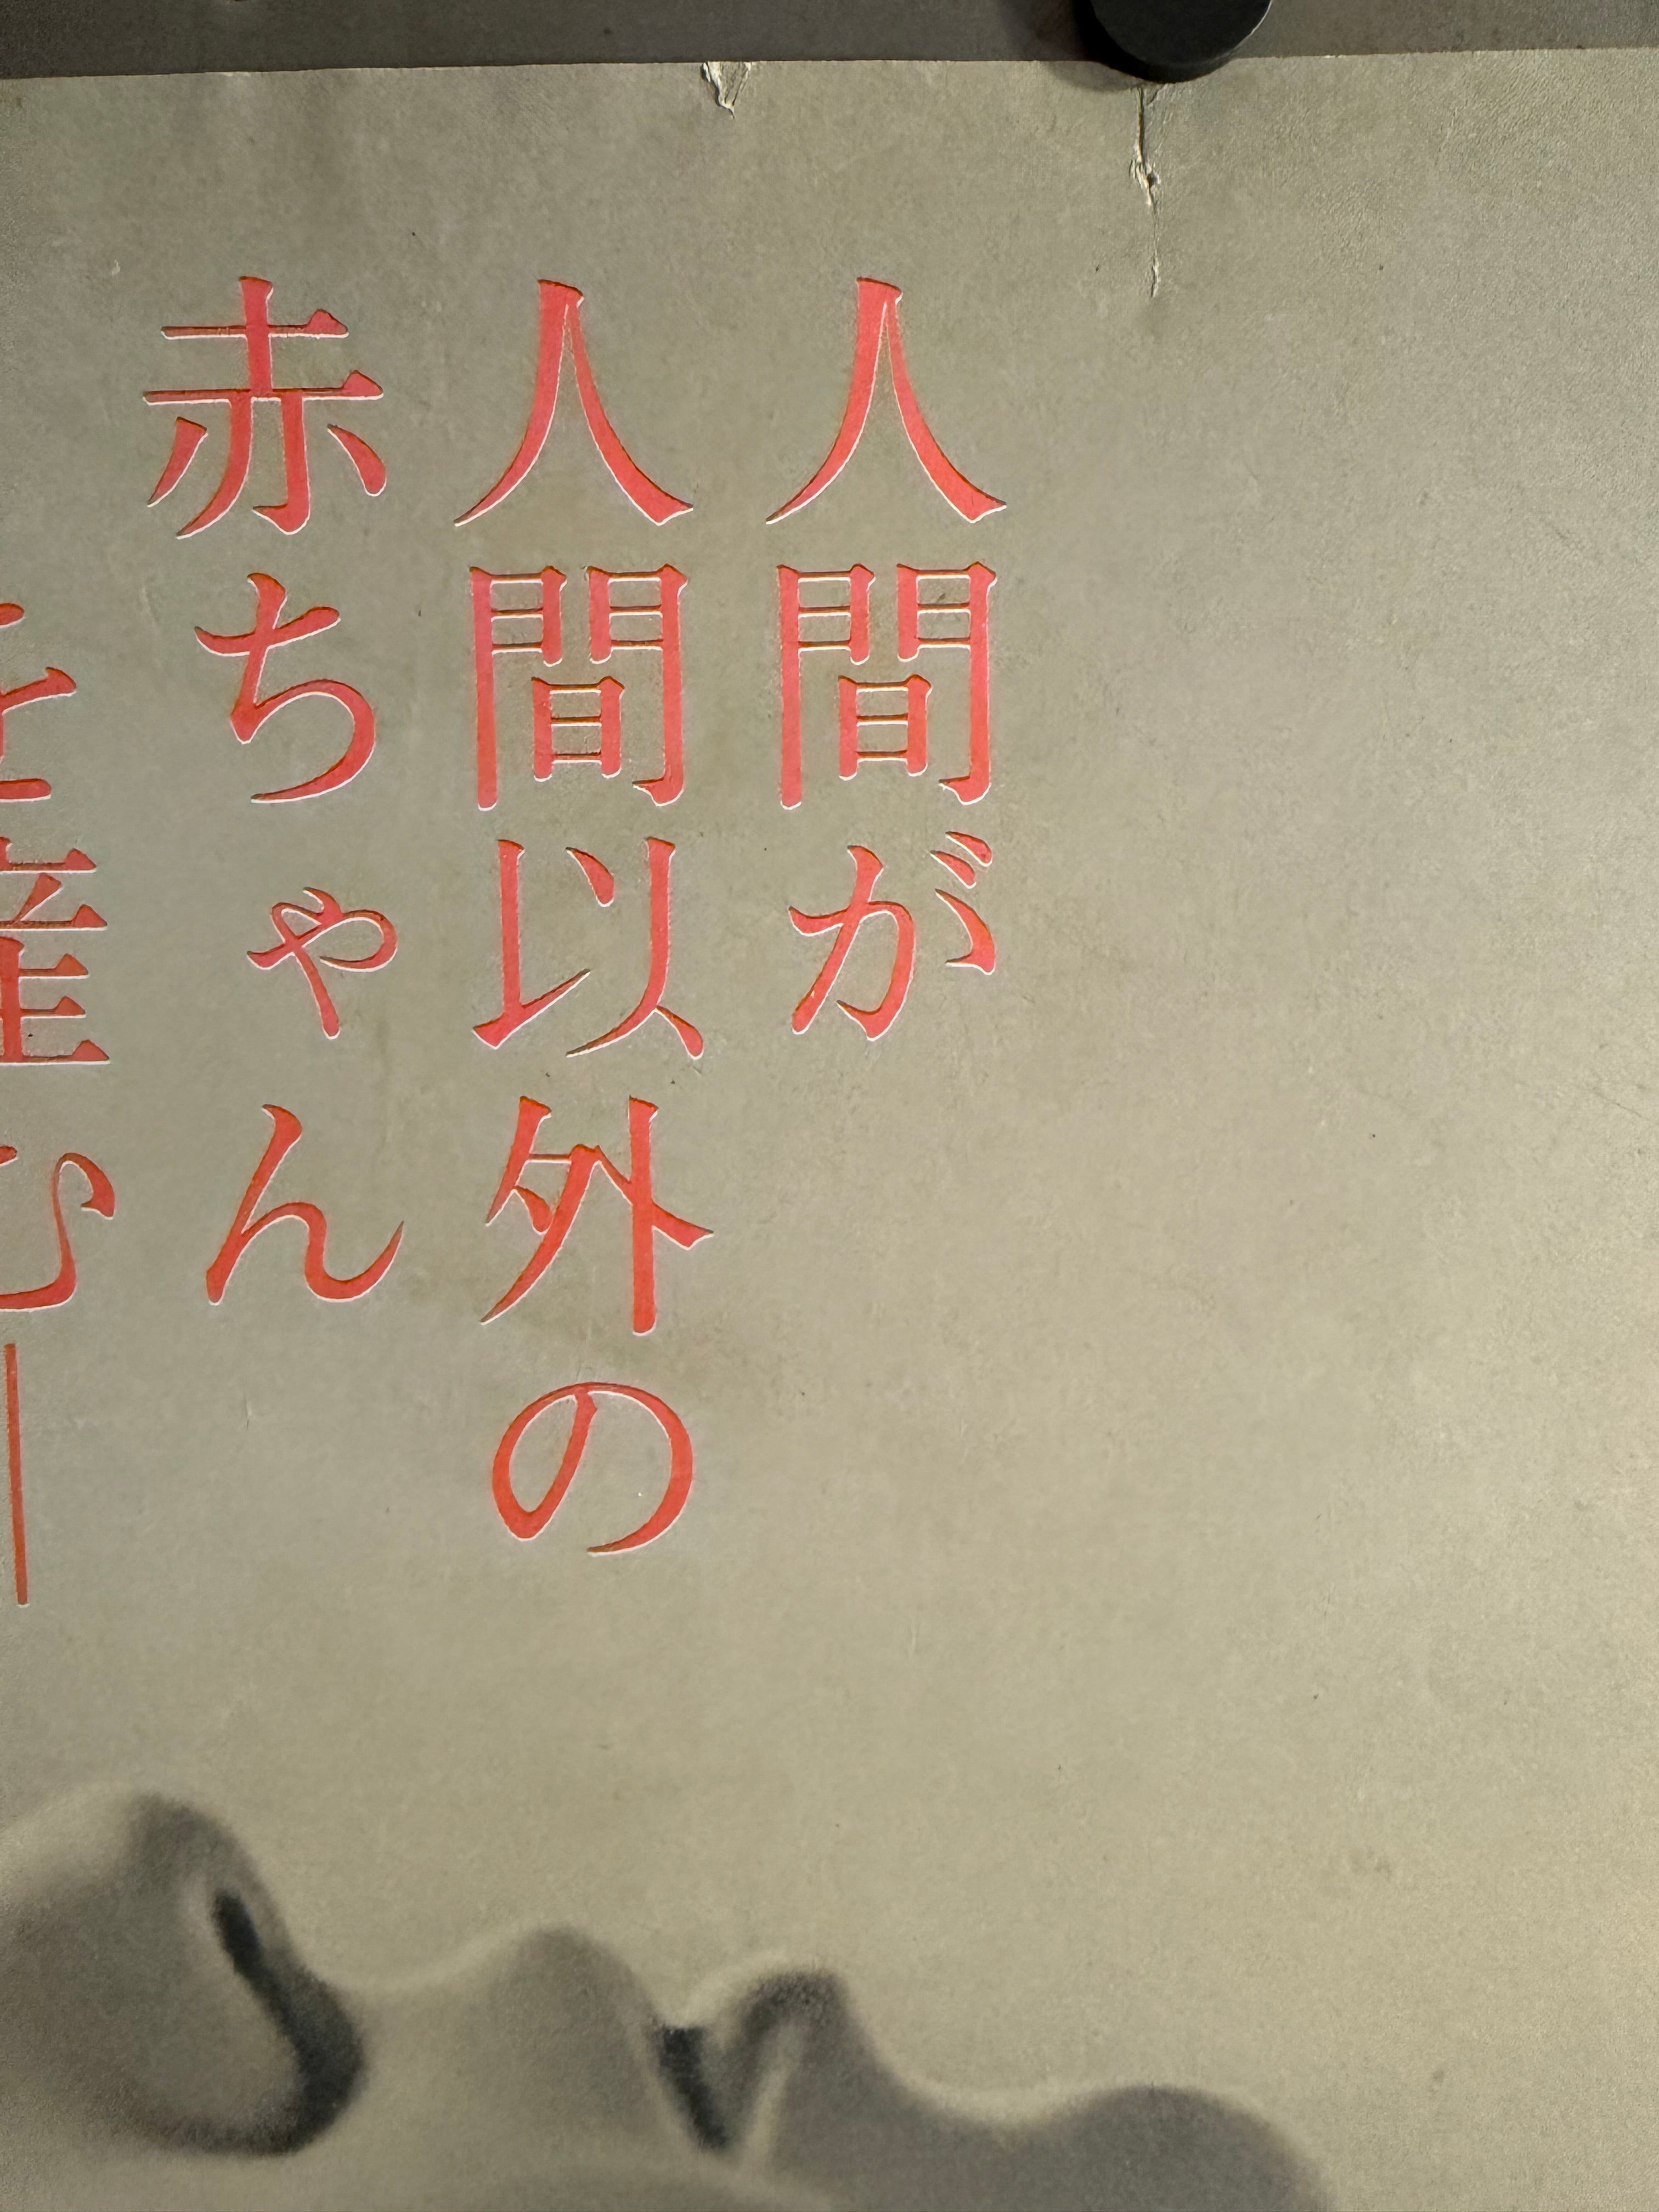 人間が
人間以外の
赤ちゃん
を産む―